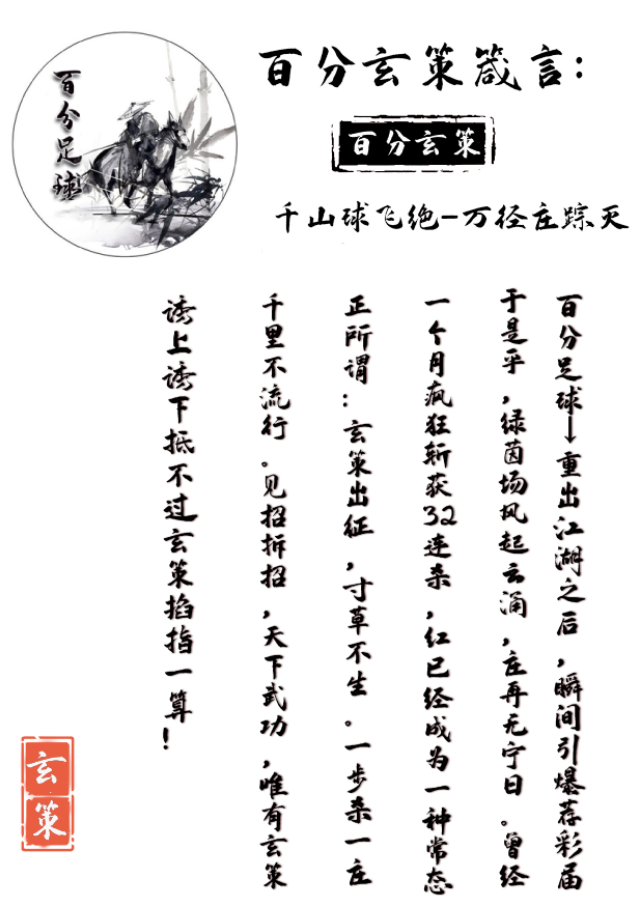 百分足球
百分玄策箴言:
百分玄策
千山球飞绝-万径庄踪灭
百分足球—重出江湖之后，瞬间引爆荐彩届
于是乎，绿茵场风起云涌，庄再无宁日。曾经
一个月疯狂斩获32连杀，红已经成为一种常态
正所谓：玄策出征，寸草不生。一步杀一庄
千里不流行。见招拆招，天下武功，唯有玄策
诱上诱下抵不过玄策掐指一算！
玄策